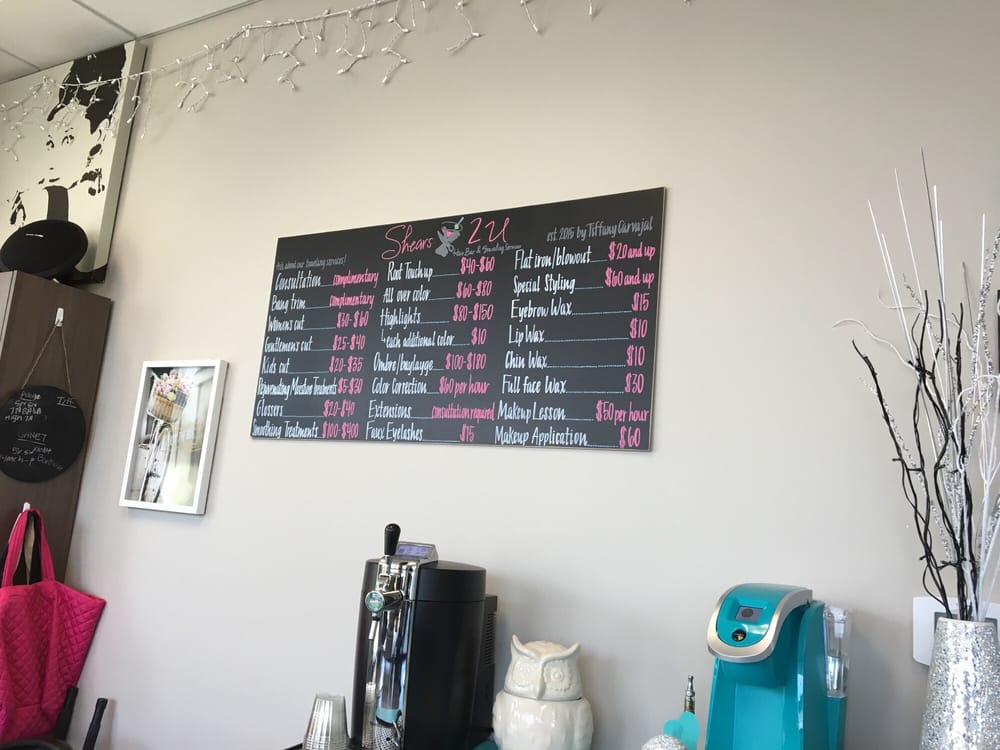 Shears 2U
Hair Bar & Traveling Services
est. 2015 by Tiffany Carvajal
Ask about our traveling services!
Consultation complimentary
Bang trim complimentary
Womens cut $30-$60
Gentlemens cut $25-$40
Kids cut $20-$35
Rejuvenating Moisture Treatments $5-$30
Glossers $20-$40
Smoothing Treatments $100-$400
Root Touch up $40-$60
All over color $60-$80
Highlights $80-$150
each additional color $10
Ombre/baylayge $100-$180
Color Correction $60 per hour
Extensions consultation required
Faux Eyelashes $15
Flat iron/blowout $20 and up
Special Styling $60 and up
Eyebrow Wax $15
Lip Wax $10
Chin Wax $10
Full face Wax $30
Makeup Lesson $50 per hour
Makeup Application $60
Tiff